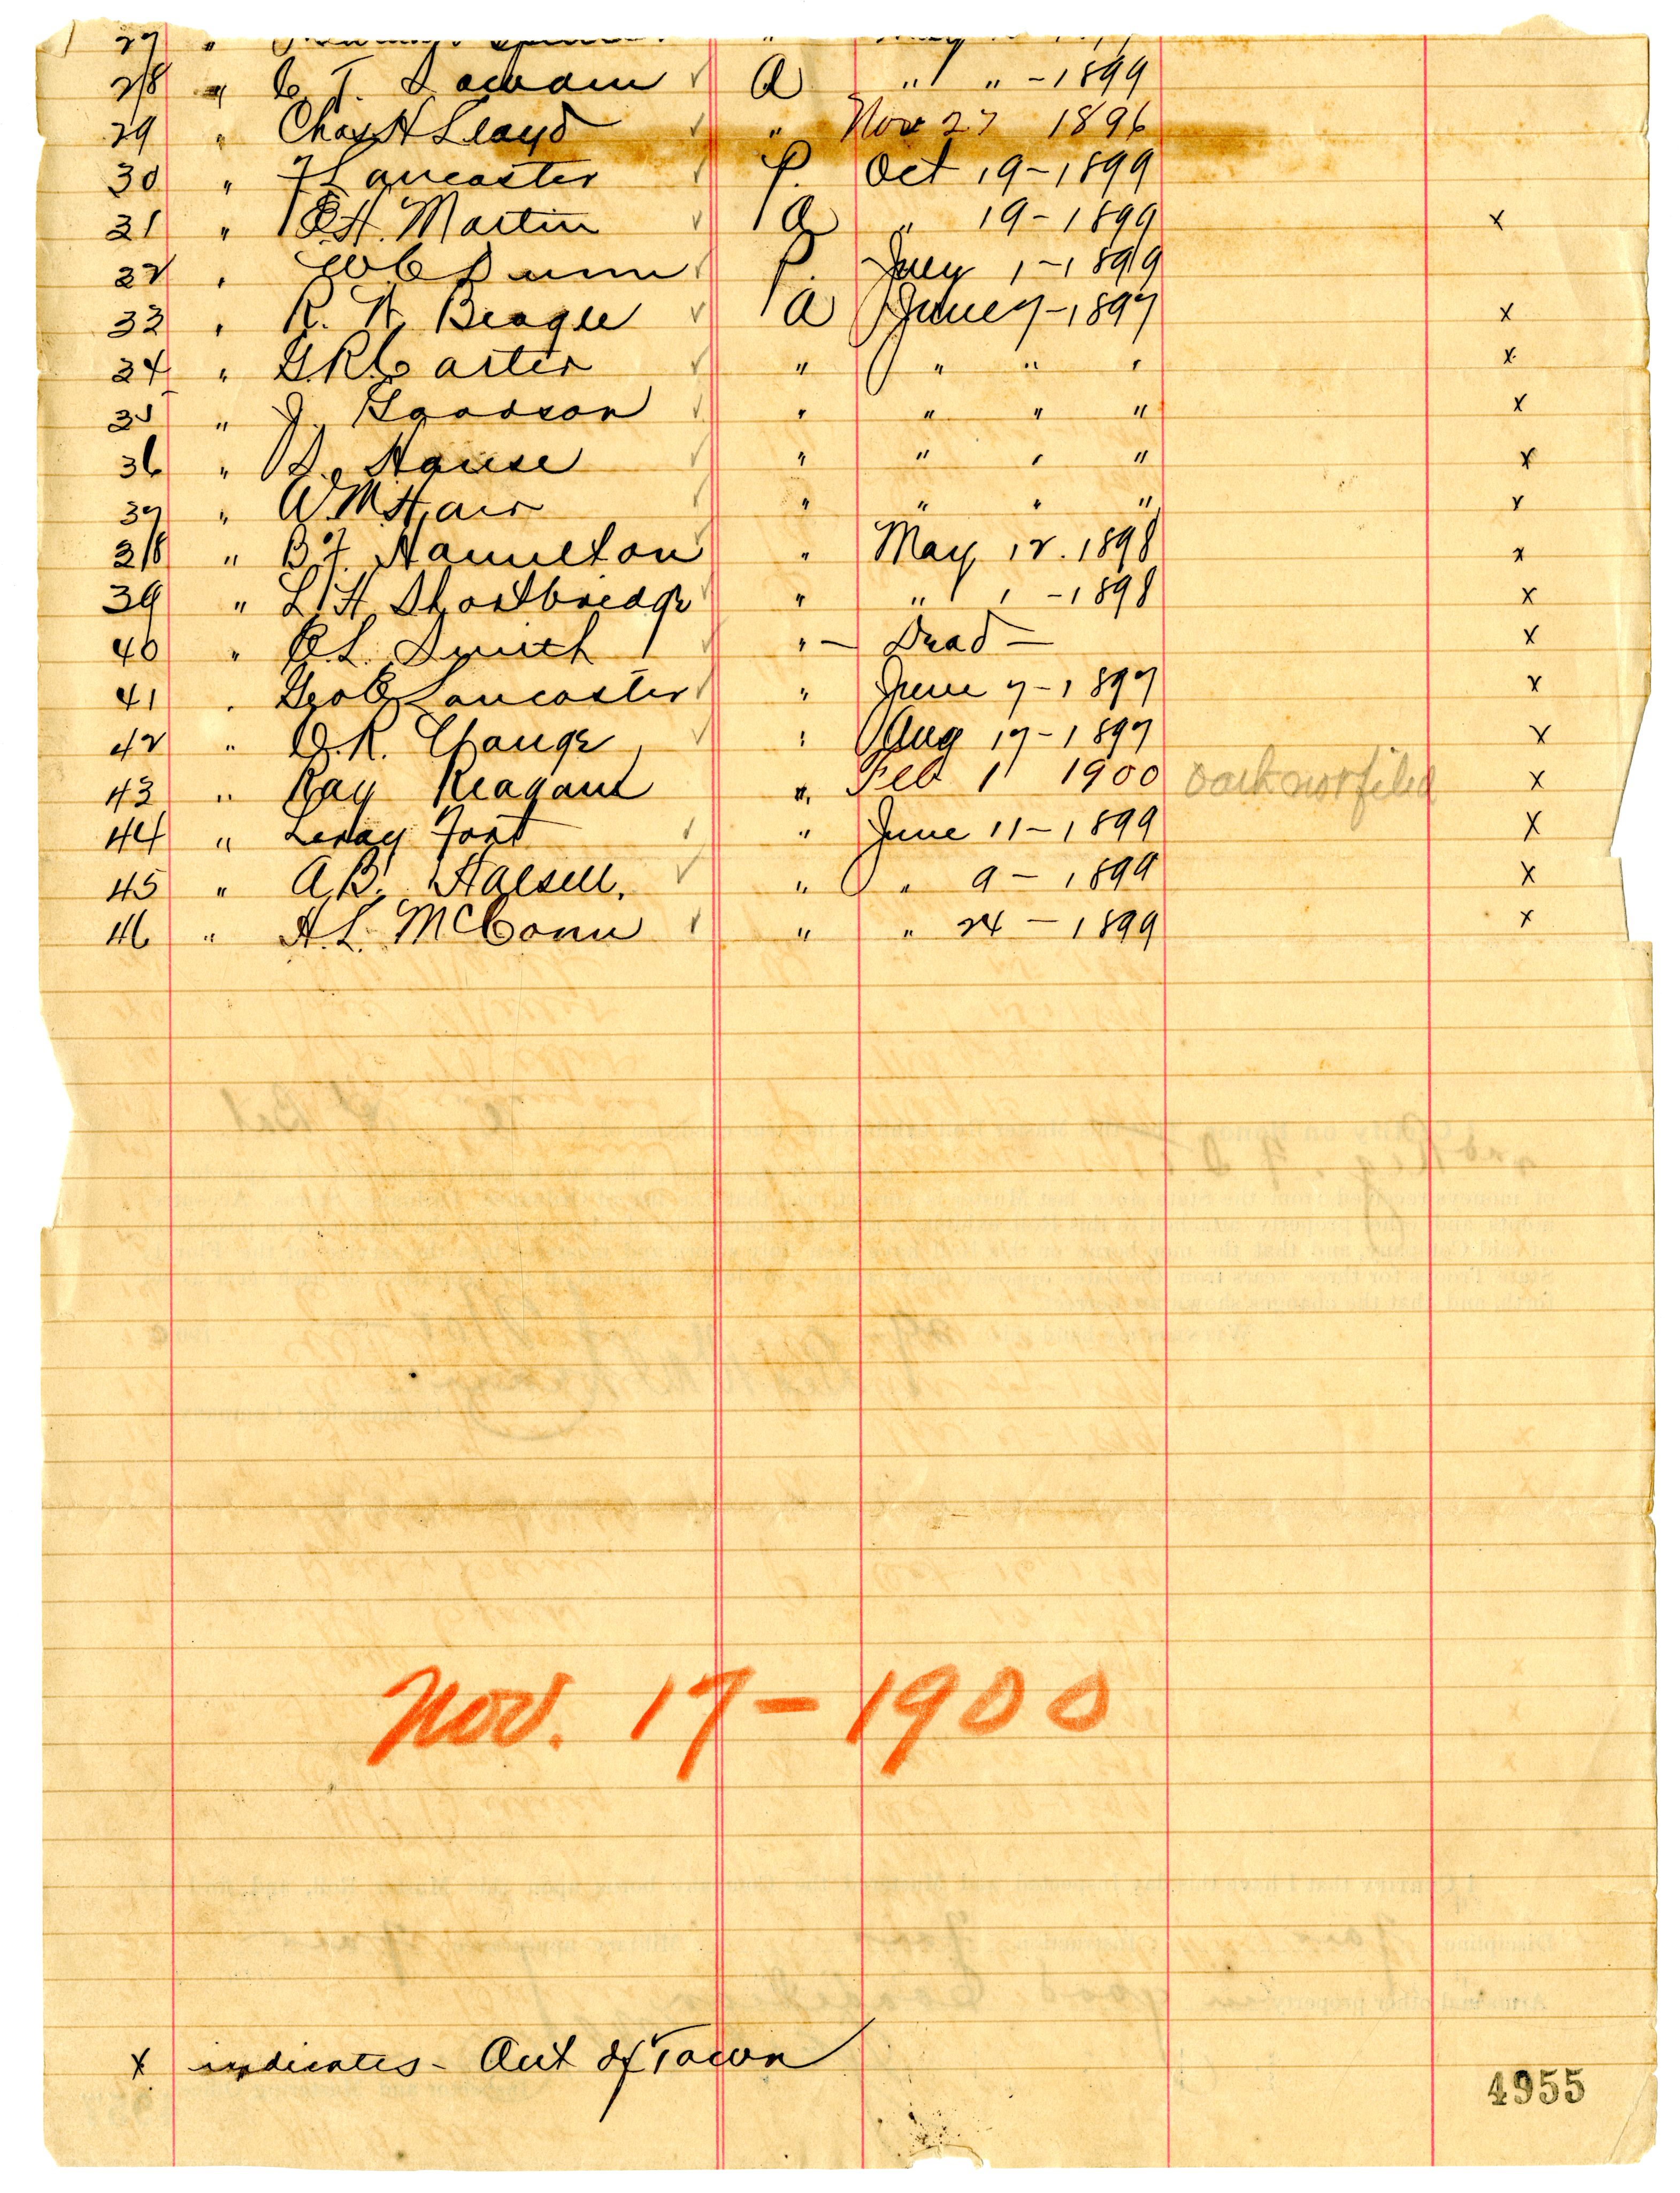 27 "
28 " C T. " A " " - 1899
29 " Chas H Lloyd " Nov 27 1896
30 " F Lancaster P. Oct 19 - 1899
31 " E.H. Martin A " 19 - 1899 x
32 " W C Dunn P. July 1 - 1899
33 " R. N. Beagle A June 7 - 1897 x
34 " G.R. Carter " " " " x
35 " J. Goodson " " " " x
36 " S. House " " " " x
37 " W.M. Hair " " " " x
38 " B.F. Hamilton " May 12. 1898 x
39 " L. H. Shortbridge " " " - 1898 x
40 " E.L. Smith " - Dead - x
41 " Geo E Lancaster " June 7 - 1897 x
42 " O.R. Change " Aug 17 - 1897 x
43 " Ray Reagan " Feb 1 1900 Oath not filed x
44 " Leroy Fort " June 11 - 1899 x
45 " A.B. Halsell. " " 9 - 1899 x
46 " H.L. McConn " " 24 - 1899 x
Nov. 17 - 1900
x indicates - Out of Town
4955